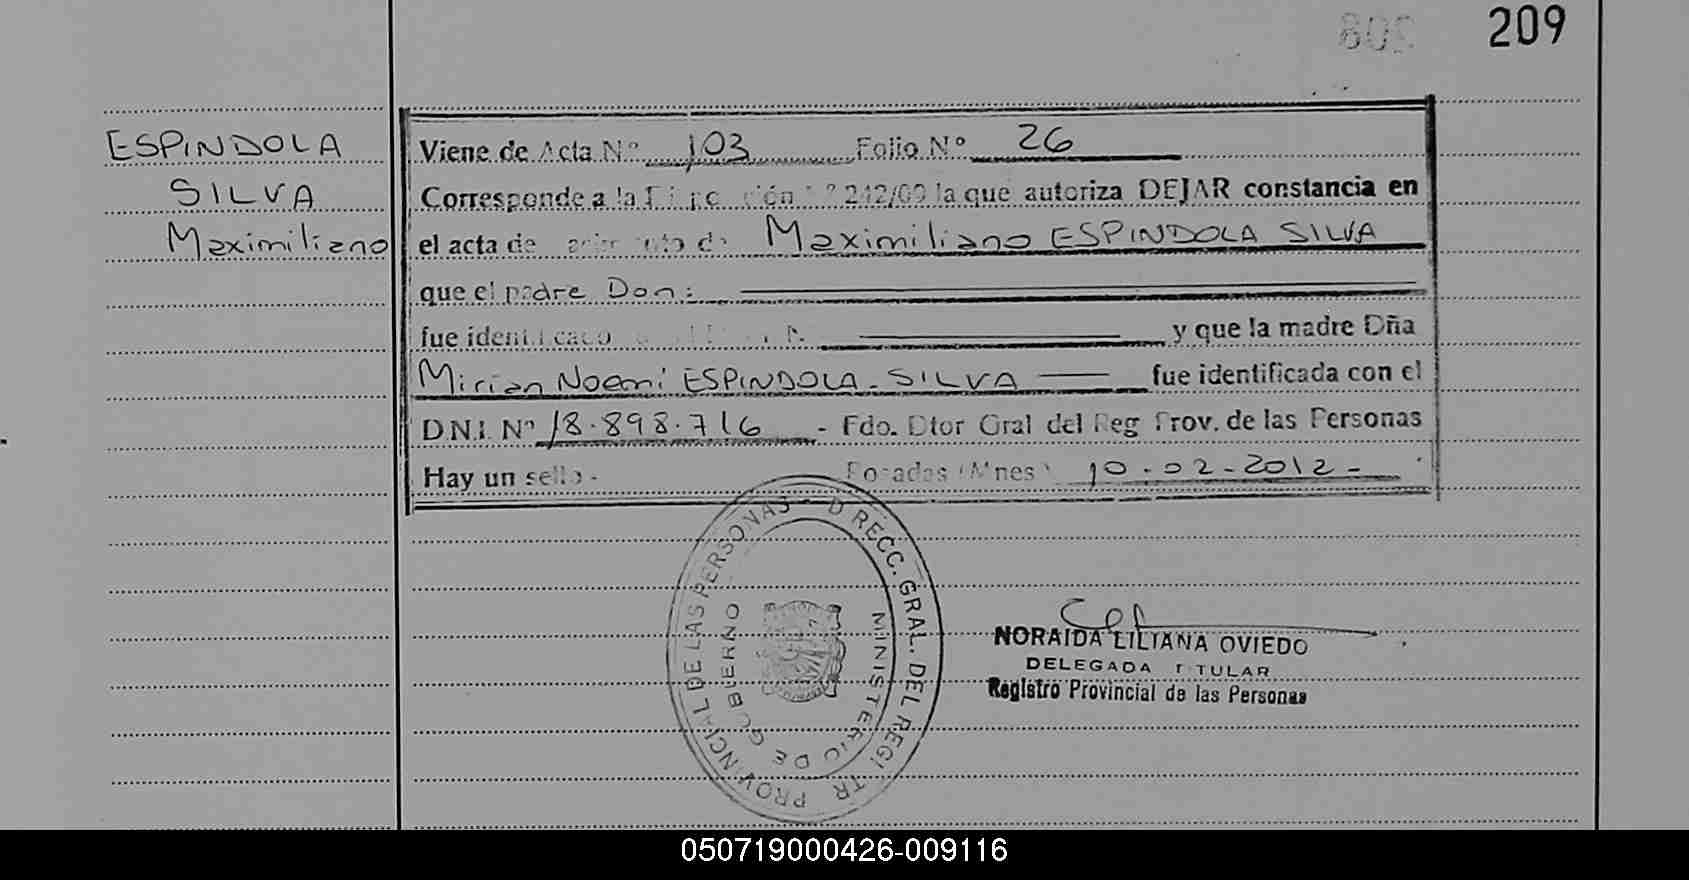 209
ESPINDOLA
SILVA
Maximiliano
Viene de Acta N° 103 Folio N° 26
Corresponde a la 242/09 la que autoriza DEJAR constancia en
el acta de Maximiliano ESPINDOLA SILVA
que el padre Don:
fue identificado y que la madre Dña
Mirian Noemi ESPINDOLA - SILVA fue identificada con el
D.N.I. N° 18.898.716 - Fdo. Dtor Gral del Reg Prov. de las Personas
Hay un sello - Posadas (Mnes) 10-02-2012-
DIRECC. GRAL. DEL REGISTR PROVINCIAL DE LAS PERSONAS
MINISTERIO DE GOBIERNO
NORAIDA LILIANA OVIEDO
DELEGADA TITULAR
Registro Provincial de las Personas
050719000426-009116